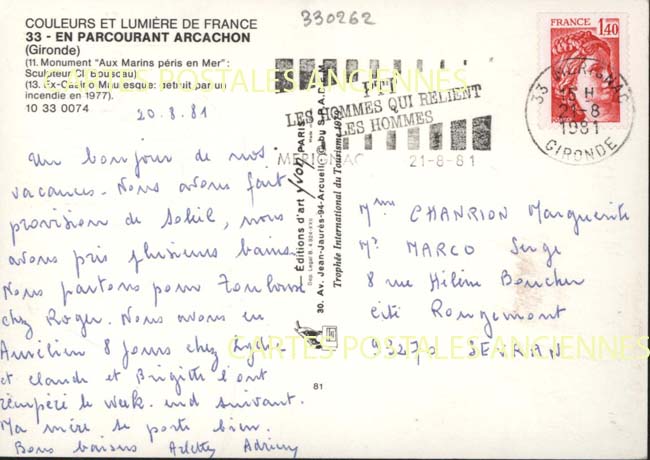 COULEURS ET LUMIÈRE DE FRANCE
33 - EN PARCOURANT ARCACHON
(Gironde)
(11. Monument "Aux Marins péris en Mer" :
Sculpteur Claboussau)
(13. Ex-Casino Mauresque: détruit par un
incendie en 1977).
10 33 0074
330262
FRANCE 1,40
33 MERIGNAC
16 H
21-8
1981
GIRONDE
PTT
LES HOMMES QUI RELIENT
LES HOMMES
MERIGNAC 21-8-81
CARTES POSTALES ANCIENNES
20.8.81
Un bonjour de nos
vacances. Nous avons fait
provision de Soleil, nous
avons pris plusieurs bains.
Nous partons pour Toulouse
chez Roger. Nous avons eu
Aurélien 8 jours chez
et claude et Brigitte l'ont
récupéré le week-end suivant.
Ma mère se porte bien.
Bons baisers Arlette Adrien
Editions d'art yvon, PARIS
30, Av. Jean-Jaurès-94-Arcueil
Trophée International du Tourisme
81
Mme CHANRION Marguerite
Mr MARCO Serge
8 rue Hélène Boucher
cité Rougemont
93270 SEVRAN
CARTES POSTALES ANCIENNES